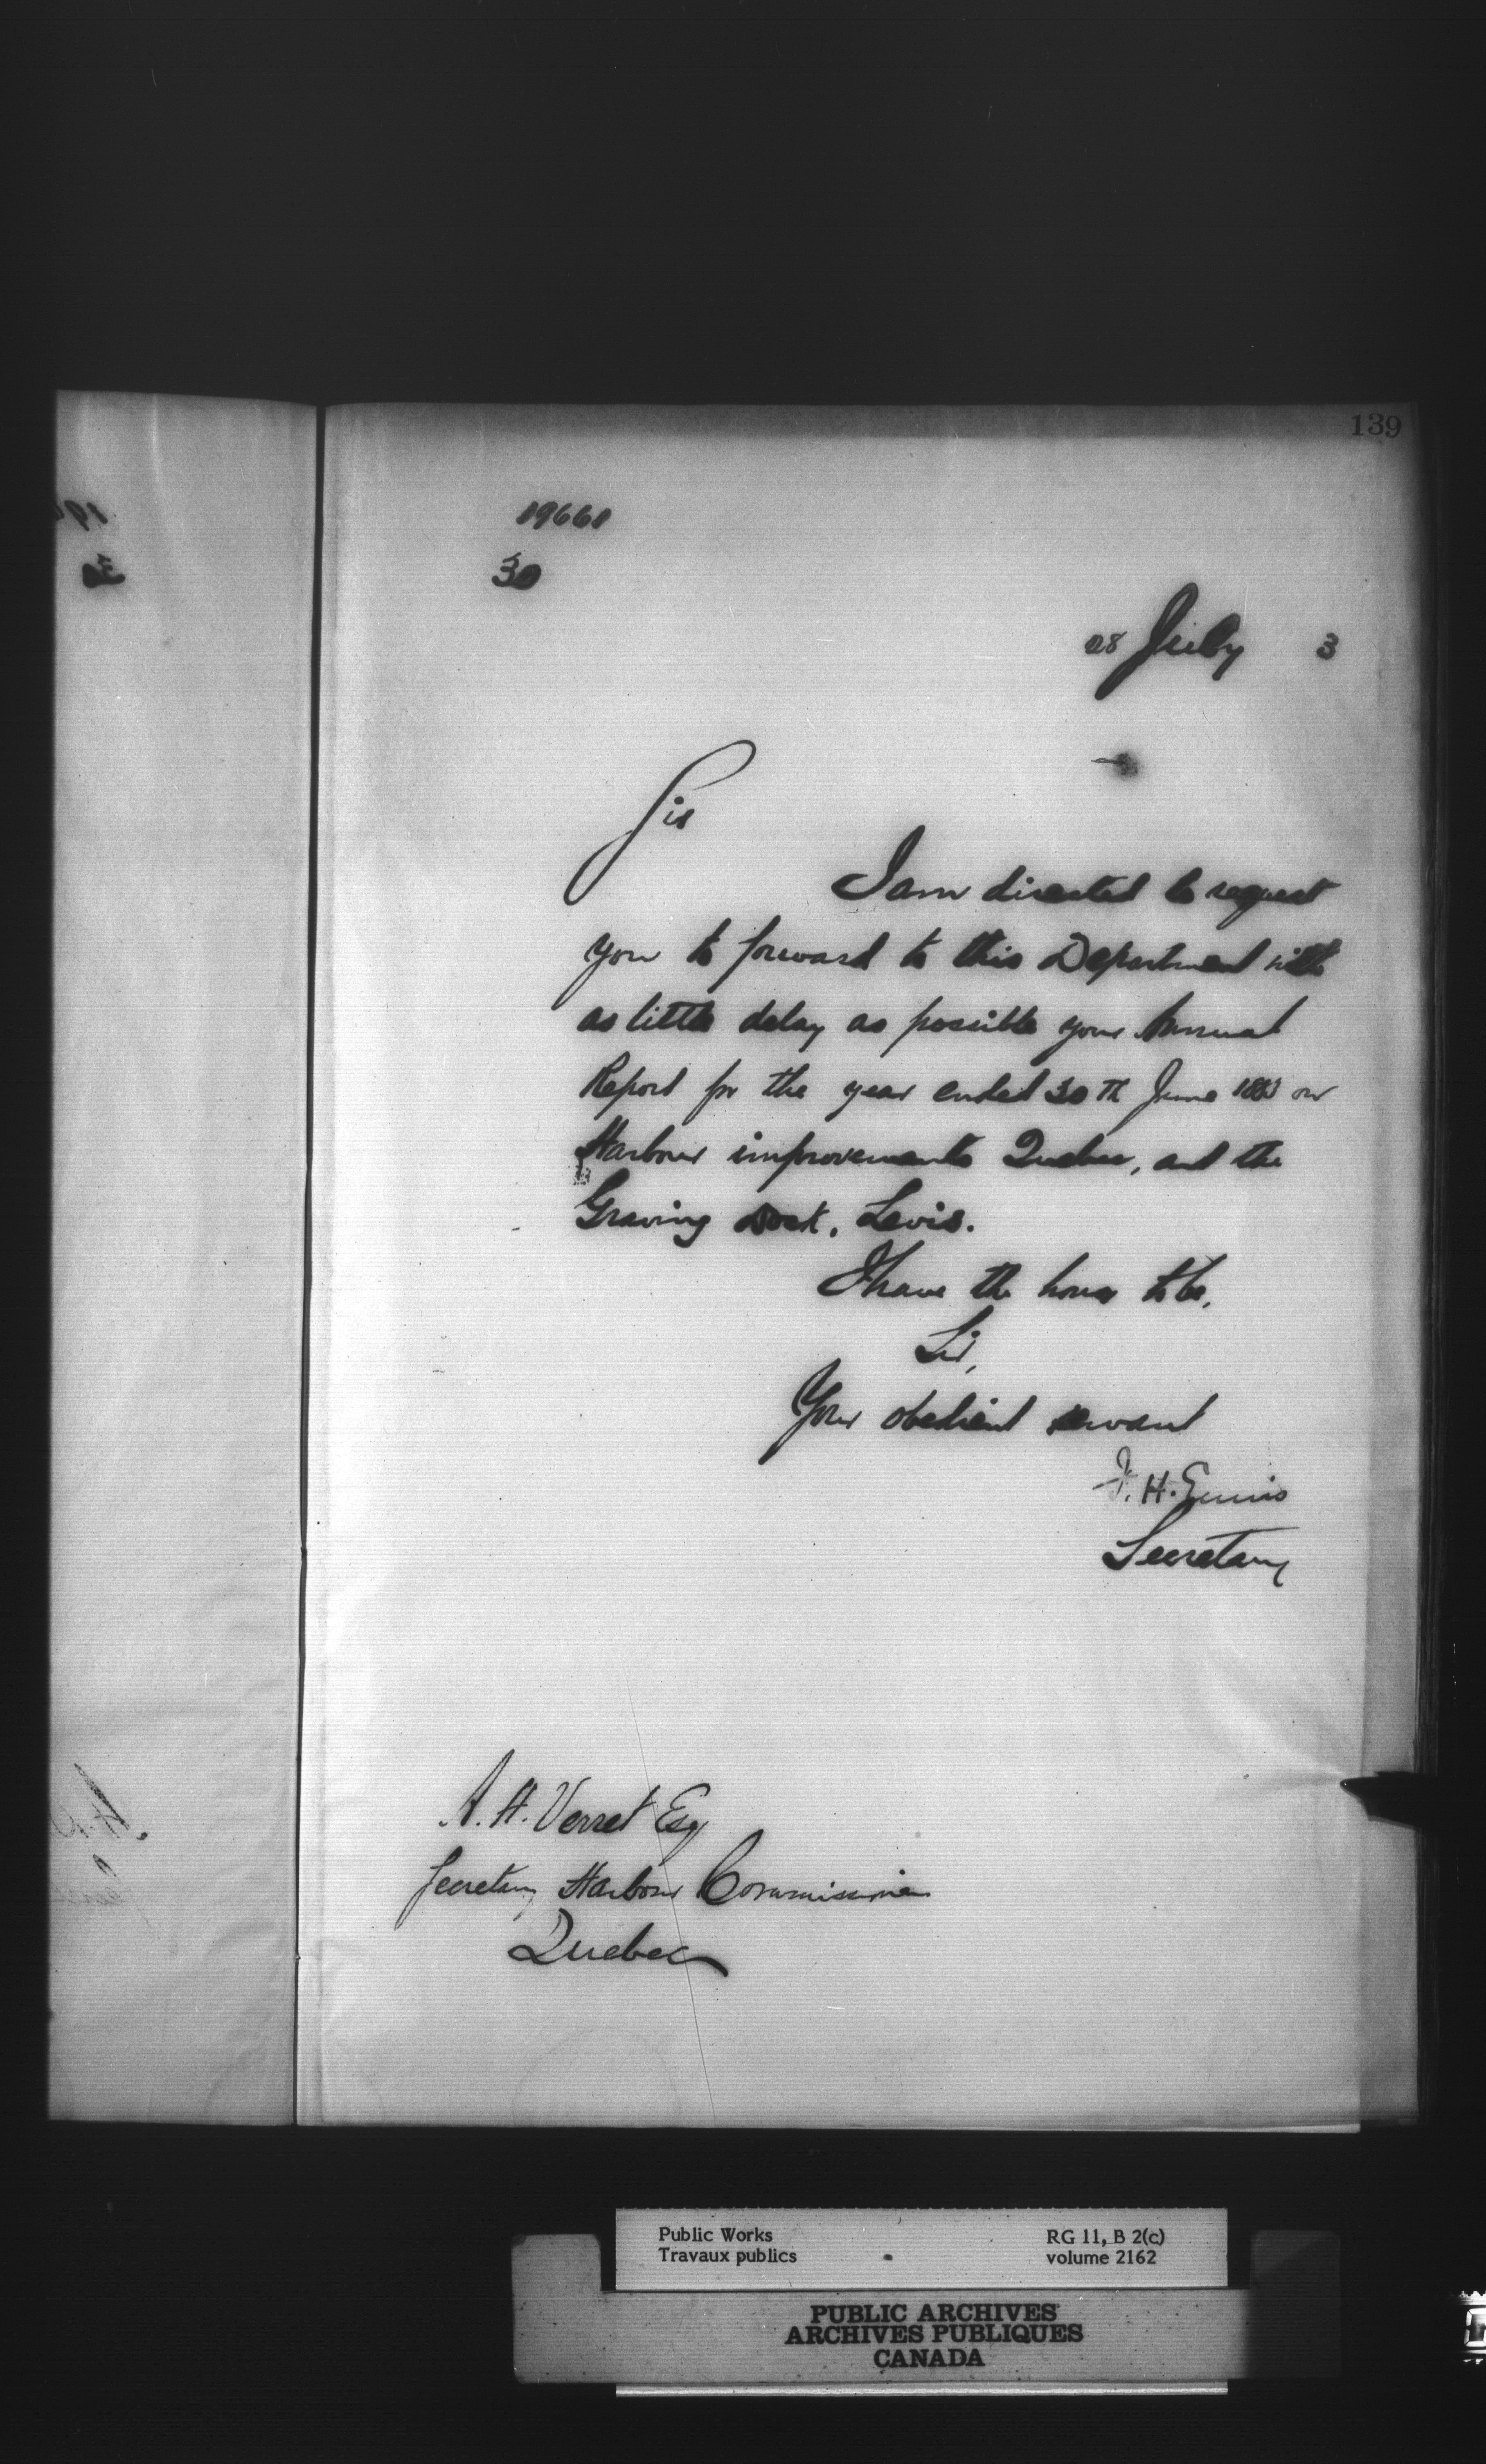 139
19661
30
28 July 3
Sir
I am directed to request
you to forward to this Department with
as little delay as possible your Annual
Report for the year ended 30th June 1883 on
Harbour improvements Quebec, and the
Graving Dock, Levis.
I have the honor to be,
Sir,
Your obedient servant
F. H. Ennis
Secretary
A. H. Verret Esq
Secretary Harbour Commission
Quebec
Public Works
Travaux publics
RG 11, B 2(c)
volume 2162
PUBLIC ARCHIVES
ARCHIVES PUBLIQUES
CANADA